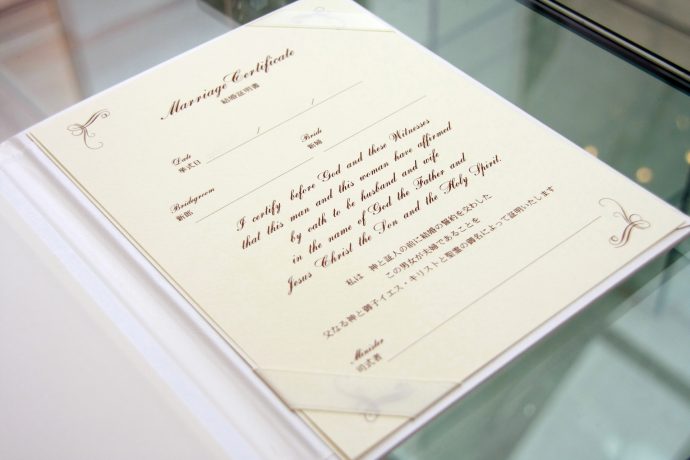 Marriage Certificate
結婚証明書
/ /
Date
挙式日
Bride
新婦
Bridegroom
新郎
I certify before God and these Witnesses
that this man and this woman have affirmed
by oath to be husband and wife
in the name of God the Father and
Jesus Christ the Son and the Holy Spirit.
私は 神と証人の前に結婚の誓約を交わした
この男女が夫婦であることを
父なる神と御子イエス・キリストと聖霊の御名によって証明いたします
Minister
司式者